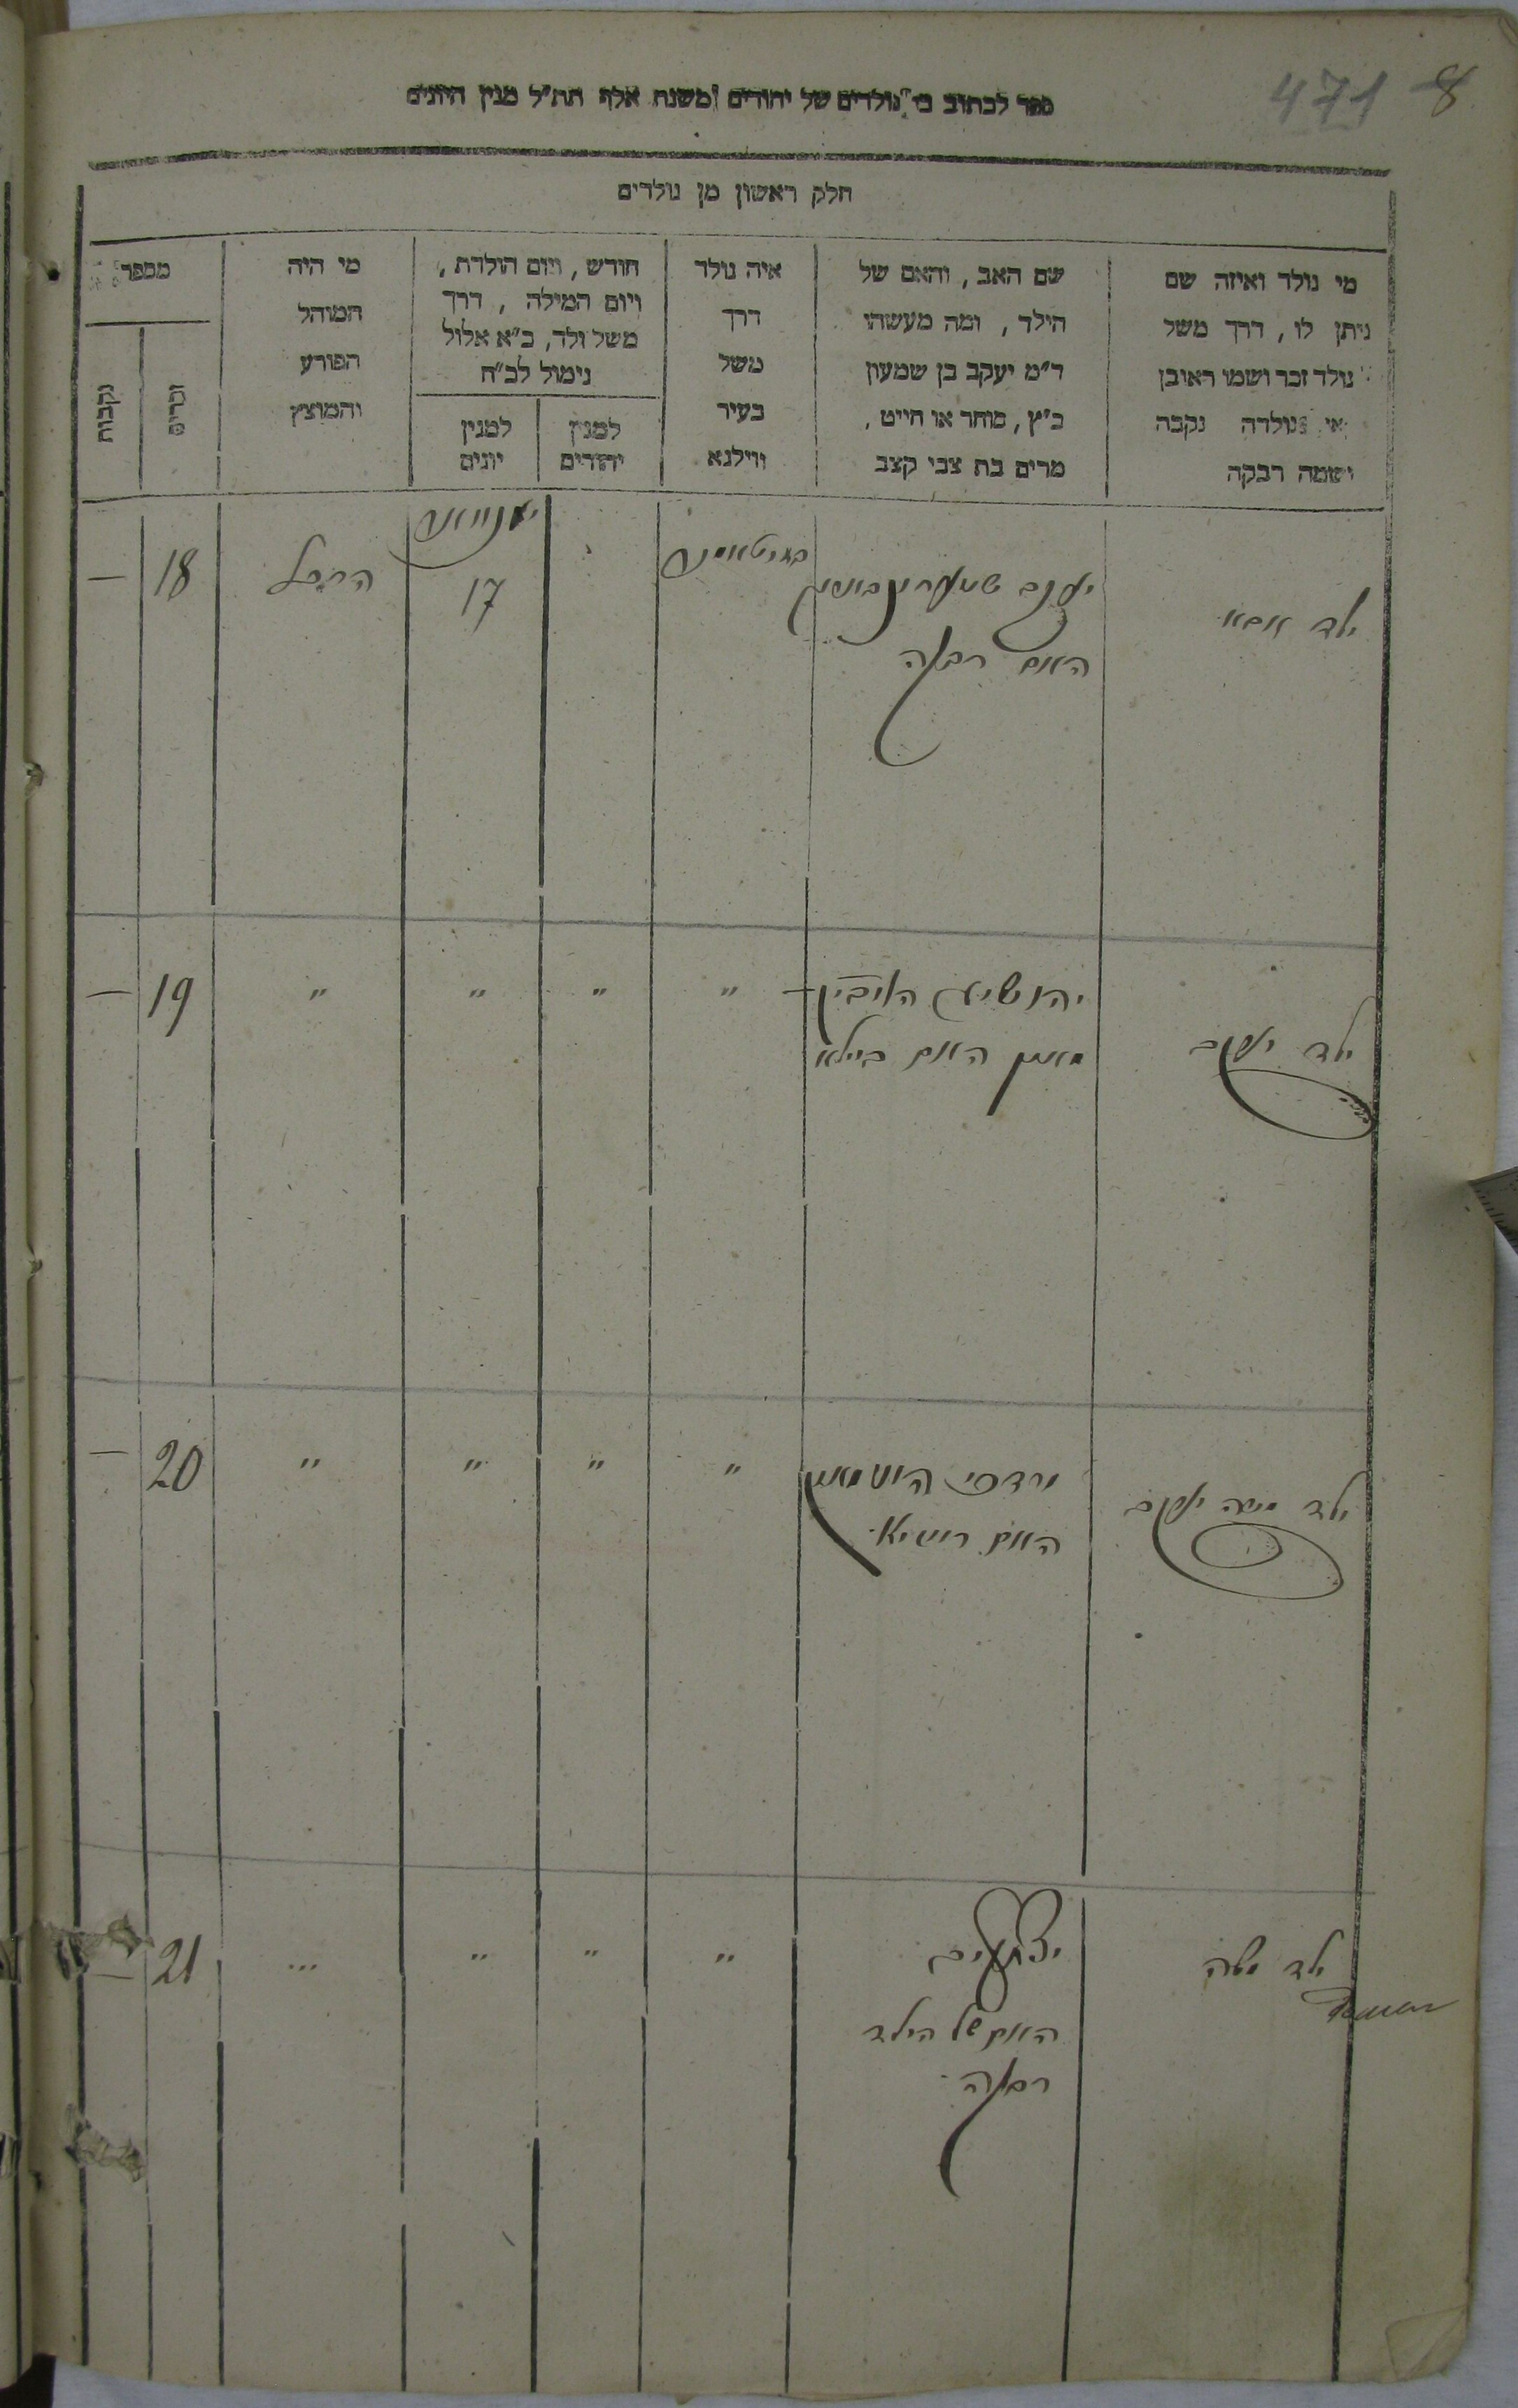 471 8
ספר לכתוב בו נולדים של יהודים משנת אלף תת״ל מנין היונים
חלק ראשון מן נולדים
מי נולד ואיזה שם
ניתן לו, דרך משל
נולד זכר ושמו ראובן
או נולדה נקבה
ושמה רבקה
שם האב, והאם של
הילד, ומה מעשהו
ד״מ יעקב בן שמעון
כ״ץ, סוחר או חייט,
מרים בת צבי קצב
איה נולד
דרך
משל
בעיר
ווילנא
חודש, ויום הולדת,
ויום המילה, דרך
משל ולד, כ״א אלול
נימול לכ״ח
למנין
יהודים
למנין
יונים
מי היה
המוהל
הפורע
והמוצץ
מספר
זכרים
נקבות
ילד אבא
יעקב
האם רבקה
17
18
—
ילד יעקב
האם ביילא
"
"
"
"
19
—
ילד משה יעקב
מרדכי
האם
"
"
"
"
20
—
ילד משה
האם של הילד
רבקה
"
"
"
21
—